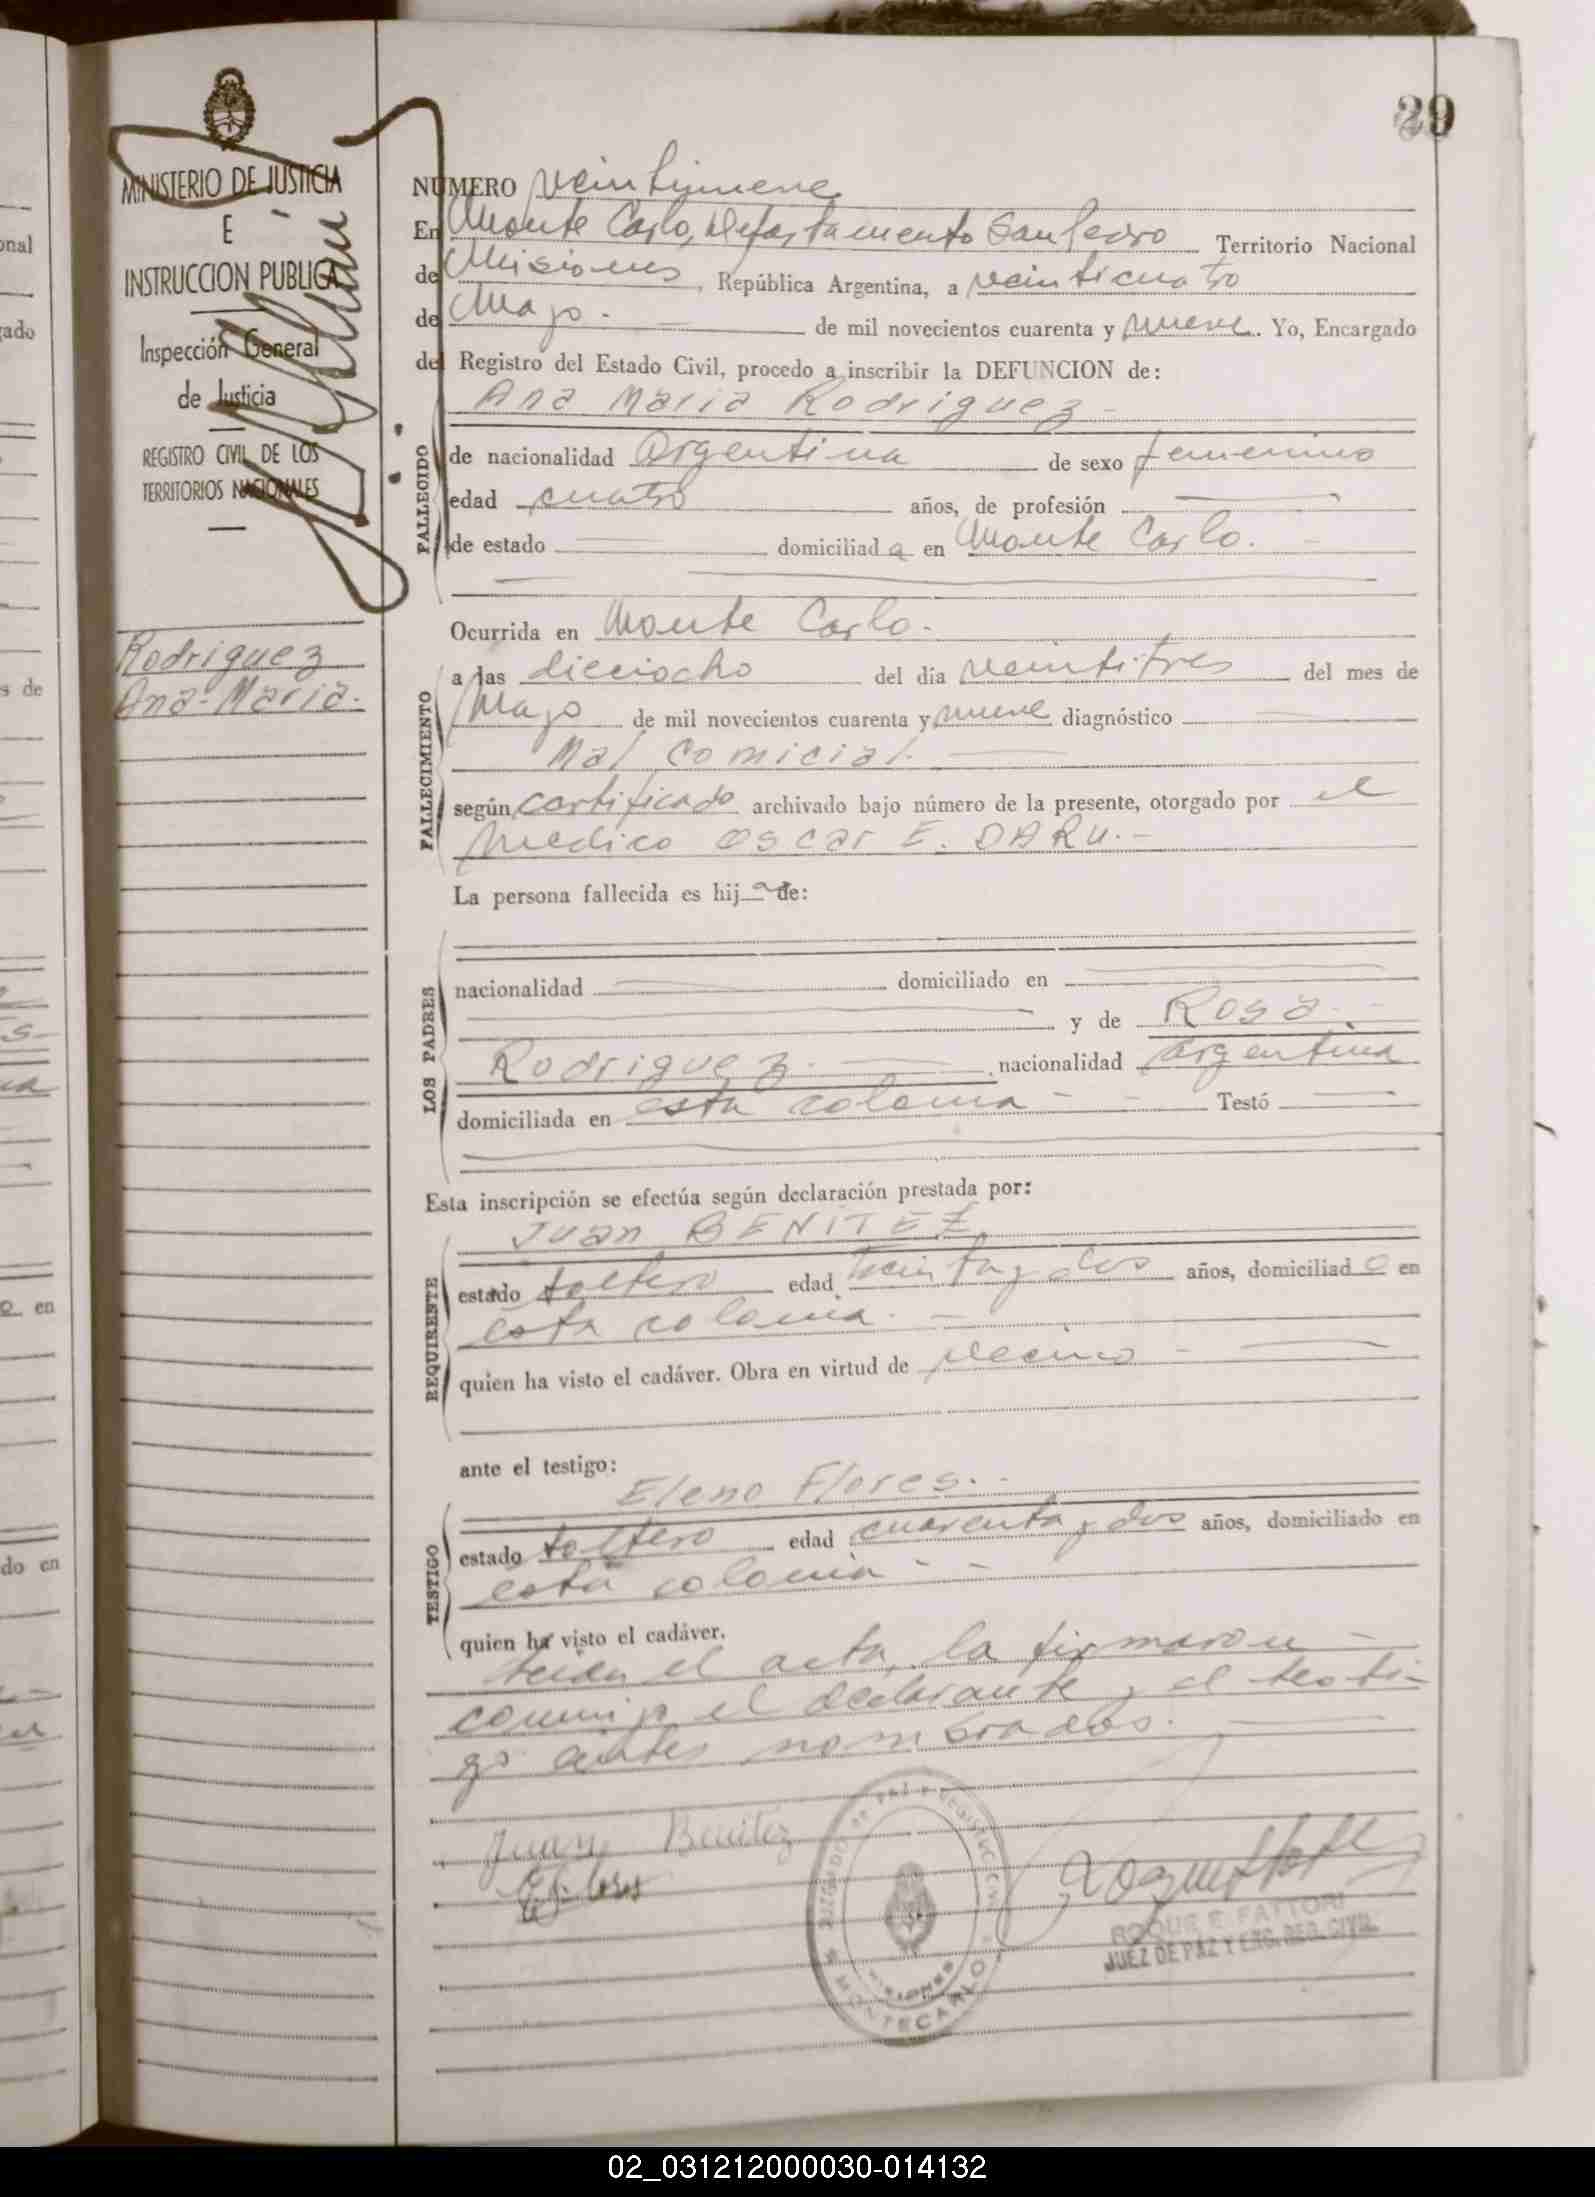 29
MINISTERIO DE JUSTICIA
E
INSTRUCCION PUBLICA
Inspección General
de Justicia
REGISTRO CIVIL DE LOS
TERRITORIOS NACIONALES
Rodriguez
Ana-Maria.
NUMERO veintinueve
En Monte Carlo, Departamento San Pedro Territorio Nacional
de Misiones, República Argentina, a veinticuatro
de Mayo. de mil novecientos cuarenta y nueve. Yo, Encargado
del Registro del Estado Civil, procedo a inscribir la DEFUNCION de:
Ana Maria Rodriguez
FALLECIDO
de nacionalidad Argentina de sexo femenino
edad cuatro años, de profesión
de estado domiciliada en Monte Carlo.
Ocurrida en Monte Carlo.
FALLECIMIENTO
a las dieciocho del dia veintitres del mes de
Mayo de mil novecientos cuarenta y nueve diagnóstico
Mal comicial.
según certificado archivado bajo número de la presente, otorgado por el
medico Oscar E. DARU.
La persona fallecida es hija de:
LOS PADRES
nacionalidad domiciliado en
y de Rosa
Rodriguez. nacionalidad argentina
domiciliada en esta colonia Testó
Esta inscripción se efectúa según declaración prestada por:
Juan BENITEZ
REQUIRENTE
estado soltero edad treinta y dos años, domiciliado en
esta colonia.
quien ha visto el cadáver. Obra en virtud de vecino
ante el testigo:
Eleno Flores.
TESTIGO
estado soltero edad cuarenta y dos años, domiciliado en
esta colonia
quien ha visto el cadáver.
el acta, la firmaron
conmigo el declarante y el testi-
go antes nombrados.
Juan Benitez
E. Flores
JUZGADO DE PAZ Y REGISTRO CIVIL
MISIONES
MONTECARLO
ROQUE E. FATTORI
JUEZ DE PAZ Y ENC. REG. CIVIL
02_031212000030-014132